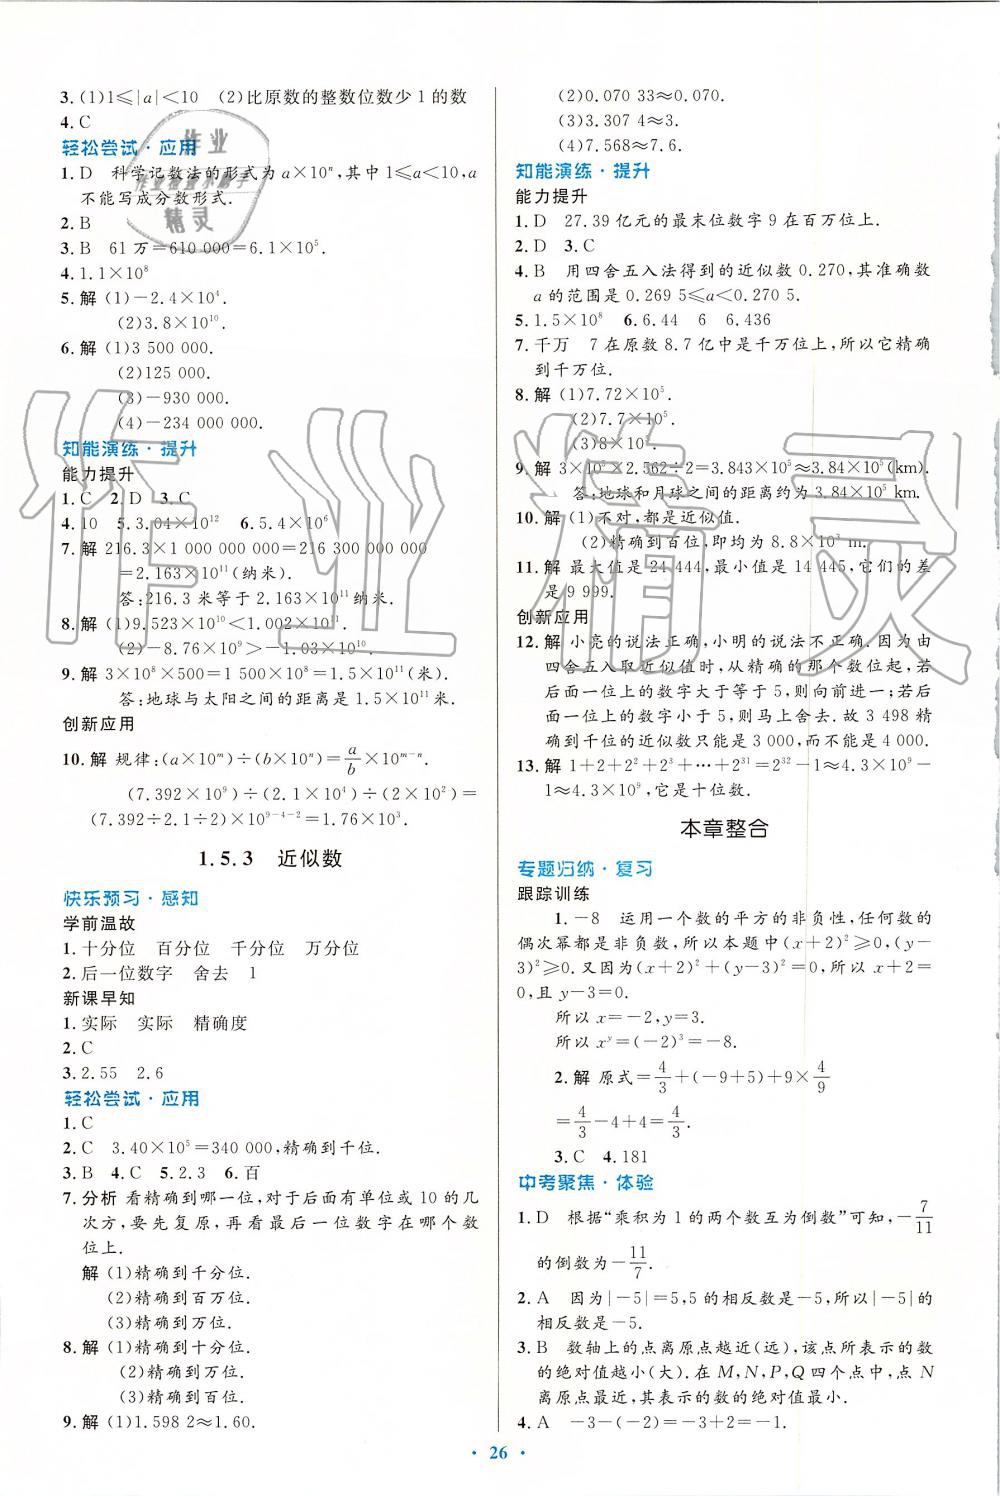 3. (1)1≤|a|<10　(2)比原数的整数位数少 1 的数
4. C
轻松尝试·应用
1. D　科学记数法的形式为 a×10ⁿ,其中 1≤a<10,a
不能写成分数形式.
2. B
3. B　61 万=610 000=6.1×10⁵.
4. 1.1×10⁸
5. 解 (1)-2.4×10⁴.
(2)3.8×10¹⁰.
6. 解 (1)3 500 000.
(2)125 000.
(3)-930 000.
(4)-234 000 000.
知能演练·提升
能力提升
1. C　2. D　3. C
4. 10　5. 3.04×10¹²　6. 5.4×10⁶
7. 解 216.3×1 000 000 000=216 300 000 000
=2.163×10¹¹(纳米).
答:216.3 米等于 2.163×10¹¹纳米.
8. 解 (1)9.523×10¹⁰<1.002×10¹¹.
(2)-8.76×10⁹>-1.03×10¹⁰.
9. 解 3×10⁸×500=1 500×10⁸=1.5×10¹¹(米).
答:地球与太阳之间的距离是 1.5×10¹¹米.
创新应用
10. 解 规律:(a×10ᵐ)÷(b×10ⁿ)=a/b×10ᵐ⁻ⁿ.
(7.392×10⁹)÷(2.1×10⁴)÷(2×10²)=
(7.392÷2.1÷2)×10⁹⁻⁴⁻²=1.76×10³.
1.5.3　近似数
快乐预习·感知
学前温故
1. 十分位　百分位　千分位　万分位
2. 后一位数字　舍去　1
新课早知
1. 实际　实际　精确度
2. C
3. 2.55　2.6
轻松尝试·应用
1. C
2. C　3.40×10⁵=340 000,精确到千位.
3. B　4. C　5. 2.3　6. 百
7. 分析 看精确到哪一位,对于后面有单位或 10 的几
次方,要先复原,再看最后一位数字在哪个数
位上.
解 (1)精确到千分位.
(2)精确到百万位.
(3)精确到万位.
8. 解 (1)精确到十分位.
(2)精确到万位.
(3)精确到百位.
9. 解 (1)1.598 2≈1.60.
(2)0.070 33≈0.070.
(3)3.307 4≈3.
(4)7.568≈7.6.
知能演练·提升
能力提升
1. D　27.39 亿元的最末位数字 9 在百万位上.
2. D　3. C
4. B　用四舍五入法得到的近似数 0.270,其准确数
a 的范围是 0.269 5≤a<0.270 5.
5. 1.5×10⁸　6. 6.44　6　6.436
7. 千万　7 在原数 8.7 亿中是千万位上,所以它精确
到千万位.
8. 解 (1)7.72×10⁵.
(2)7.7×10⁵.
(3)8×10⁵.
9. 解 3×10⁵×2.562÷2=3.843×10⁵≈3.84×10⁵(km).
答:地球和月球之间的距离约为 3.84×10⁵ km.
10. 解 (1)不对,都是近似值.
(2)精确到百位,即均为 8.8×10³ m.
11. 解 最大值是 24 444,最小值是 14 445,它们的差
是 9 999.
创新应用
12. 解 小亮的说法正确,小明的说法不正确.因为由
四舍五入取近似值时,从精确的那个数位起,若
后面一位上的数字大于等于 5,则向前进一;若后
面一位上的数字小于 5,则马上舍去.故 3 498 精
确到千位的近似数只能是 3 000,而不能是 4 000.
13. 解 1+2+2²+2³+…+2³¹=2³²-1≈4.3×10⁹-
1≈4.3×10⁹,它是十位数.
本章整合
专题归纳·复习
跟踪训练
1. -8　运用一个数的平方的非负性,任何数的
偶次幂都是非负数,所以本题中(x+2)²≥0,(y-
3)²≥0.又因为(x+2)²+(y-3)²=0,所以 x+2=
0,且 y-3=0.
所以 x=-2,y=3.
所以 xʸ=(-2)³=-8.
2. 解 原式=4/3+(-9+5)+9×4/9
=4/3-4+4=4/3.
3. C　4. 181
中考聚焦·体验
1. D　根据“乘积为 1 的两个数互为倒数”可知,-7/11
的倒数为-11/7.
2. A　因为|-5|=5,5 的相反数是-5,所以|-5|的
相反数是-5.
3. B　数轴上的点离原点越近(远),该点所表示的数
的绝对值越小(大).在 M,N,P,Q 四个点中,点 N
离原点最近,其表示的数的绝对值最小.
4. A　-3-(-2)=-3+2=-1.
· 26 ·
作业精灵